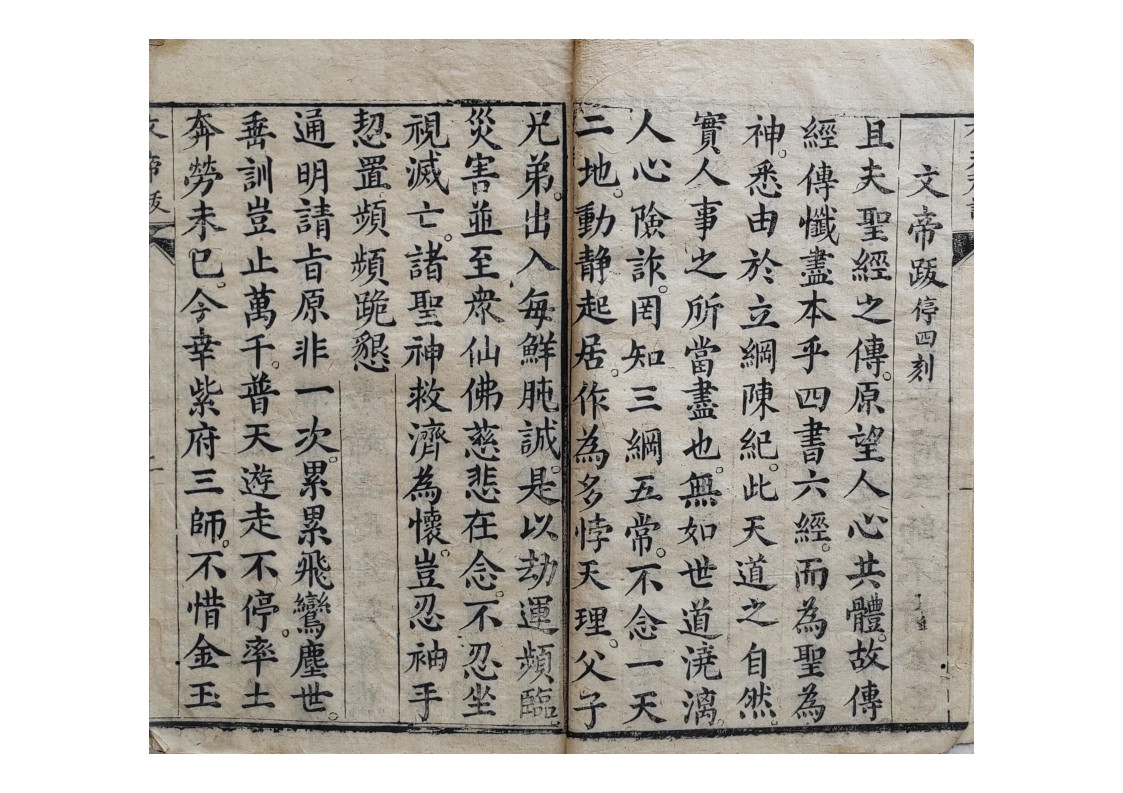 文帝跋停四刻
且夫聖經之傳。原望人心共體。故傳
經傳懺盡本乎四書六經。而為聖為
神。悉由於立綱陳紀。此天道之自然。
實人事之所當盡也。無如世道澆漓。
人心險詐。罔知三綱五常。不念一天
二地。動静起居。作為多悖天理。父子
兄弟。出入每鮮肫誠。是以劫運頻臨。
災害並至。衆仙佛慈悲在念。不忍坐
視滅亡。諸聖神救濟為懷。豈忍袖手
恝置頻頻跪懇
通明請旨原非一次。累累飛鸞塵世。
垂訓豈止萬千。普天遊走不停。率土
奔勞未已。今幸紫府三師。不惜金玉
文帝跋